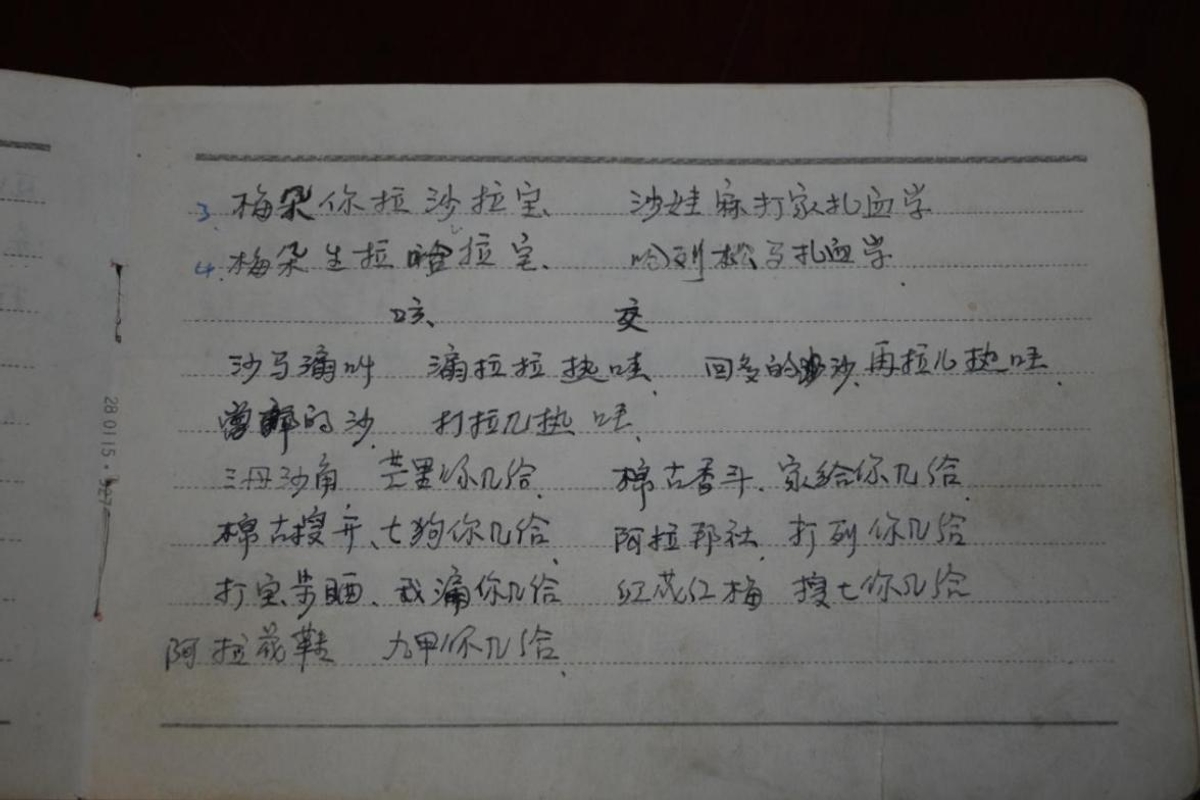 3. 梅朵你拉沙拉宝、 沙娃麻打家扎血学
4. 梅朵生拉哈拉宝、 哈列松马扎血学
咳、 交
沙马滴叫 滴拉拉热哇、 回多的沙、再拉儿热哇、
的沙、 打拉几热哇、
三丹沙角 芒里你几给、 棉古香斗、家给你几给、
棉古搜开、七狗你几给、 阿拉邦社、打列你几给
打宝步晒、我滴你几给 红花红梅 搜七你几给、
阿拉花鞋 九甲你几给、
280115·